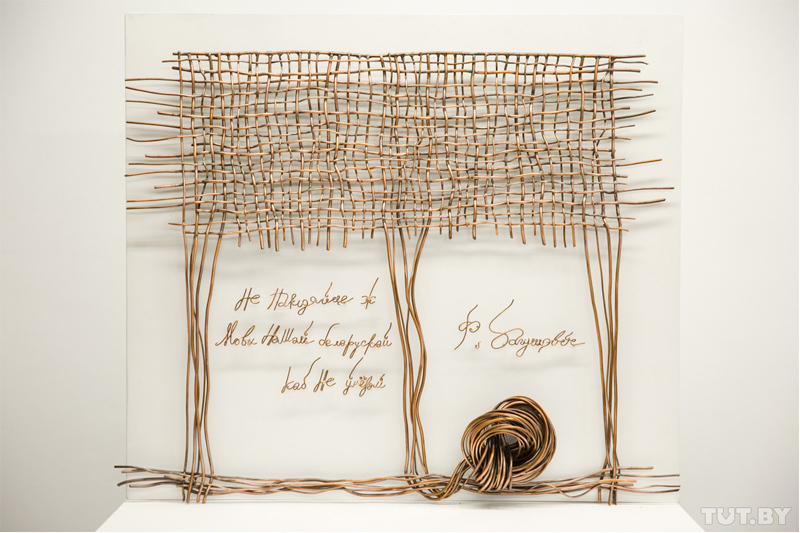 Не Пакідайце ж
Мовы Нашай беларускай
каб Не
Ф. Багушэвіч
TUT.BY